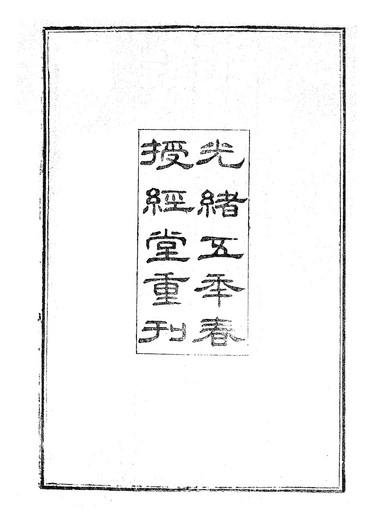 光緒五年春
授經堂重刊